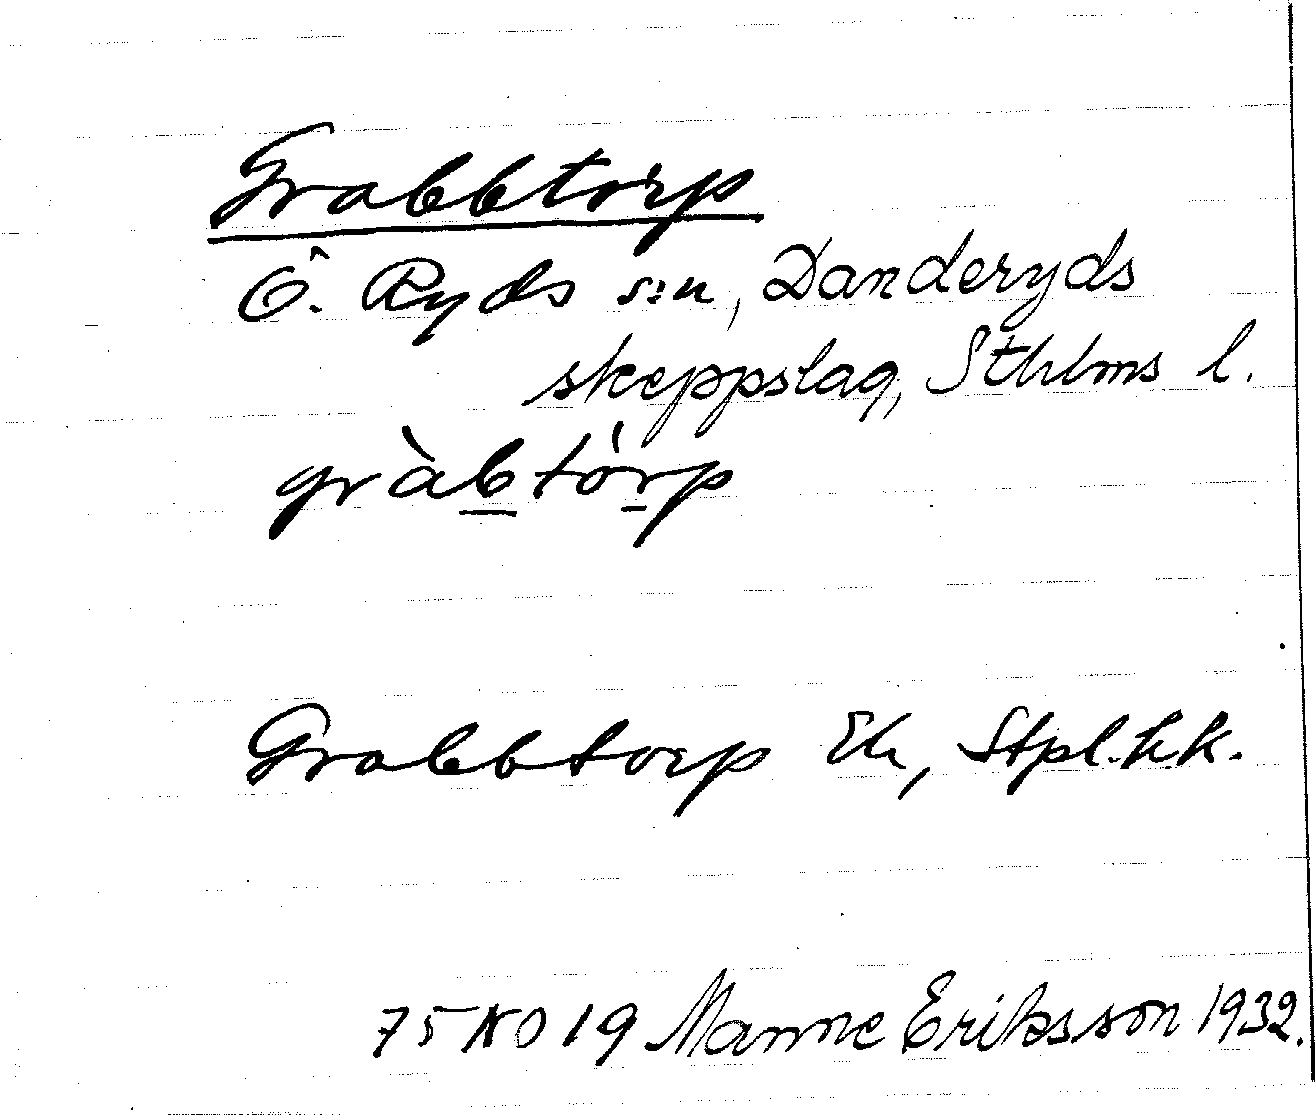 Grabbtorp
Ö. Ryds s:n, Danderyds
skeppslag, Sthlms l.
gràbtórp
Grabbtorp Ek, Stpl.kk.
75 NO 19 Manne Eriksson 1932.